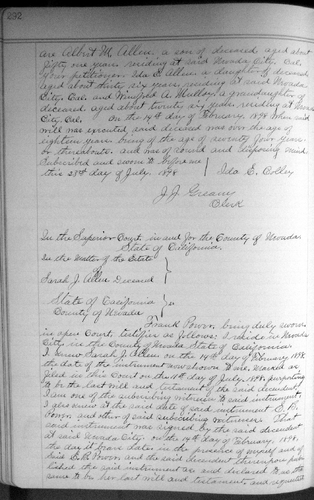 232
are Albert M. Allen, a son of deceased aged about
fifty one years residing at said Nevada City, Cal.
Your petitioner Ida E. Allen a daughter of deceased
aged about thirty six years residing at said Nevada
City Cal. and Winifred A. Mulloy a granddaughter of
deceased aged about twenty six years residing at Nevada
City, Cal. On the 14th day of February, 1898 when said
will was executed, said deceased was over the age of
eighteen years being of the age of seventy four years
or thereabouts and was of sound and disposing mind.
Subscribed and sworn to before me
this 28th day of July, 1898 } Ida E. Colley
J. J. Greany
Clerk
In the Superior Court in and for the County of Nevada
State of California.
In the Matter of the Estate
Sarah J. Allen Deceased
State of California } ss
County of Nevada
Frank Power being duly sworn
in open Court, testifies as follows: I reside in Nevada
City, in the County of Nevada State of California
I knew Sarah J. Allen on the 14th day of February 1898
the date of the instrument now shown to me, marked as
filed in this Court on the day of July, 1898 purporting
to be the last will and testament of the said decedent
I am one of the subscribing witnesses to said instrument.
I also knew at the said date of said instrument E. R.
Power and other of said subscribing witnesses. The
said instrument was signed by the said decedent
at said Nevada City, on the 14th day of February, 1898,
the day it bears date in the presence of myself and of
said E. R. Power and the said decedent thereupon pub-
lished the said instrument as and declared it as the
same to be her last will and testament and requested